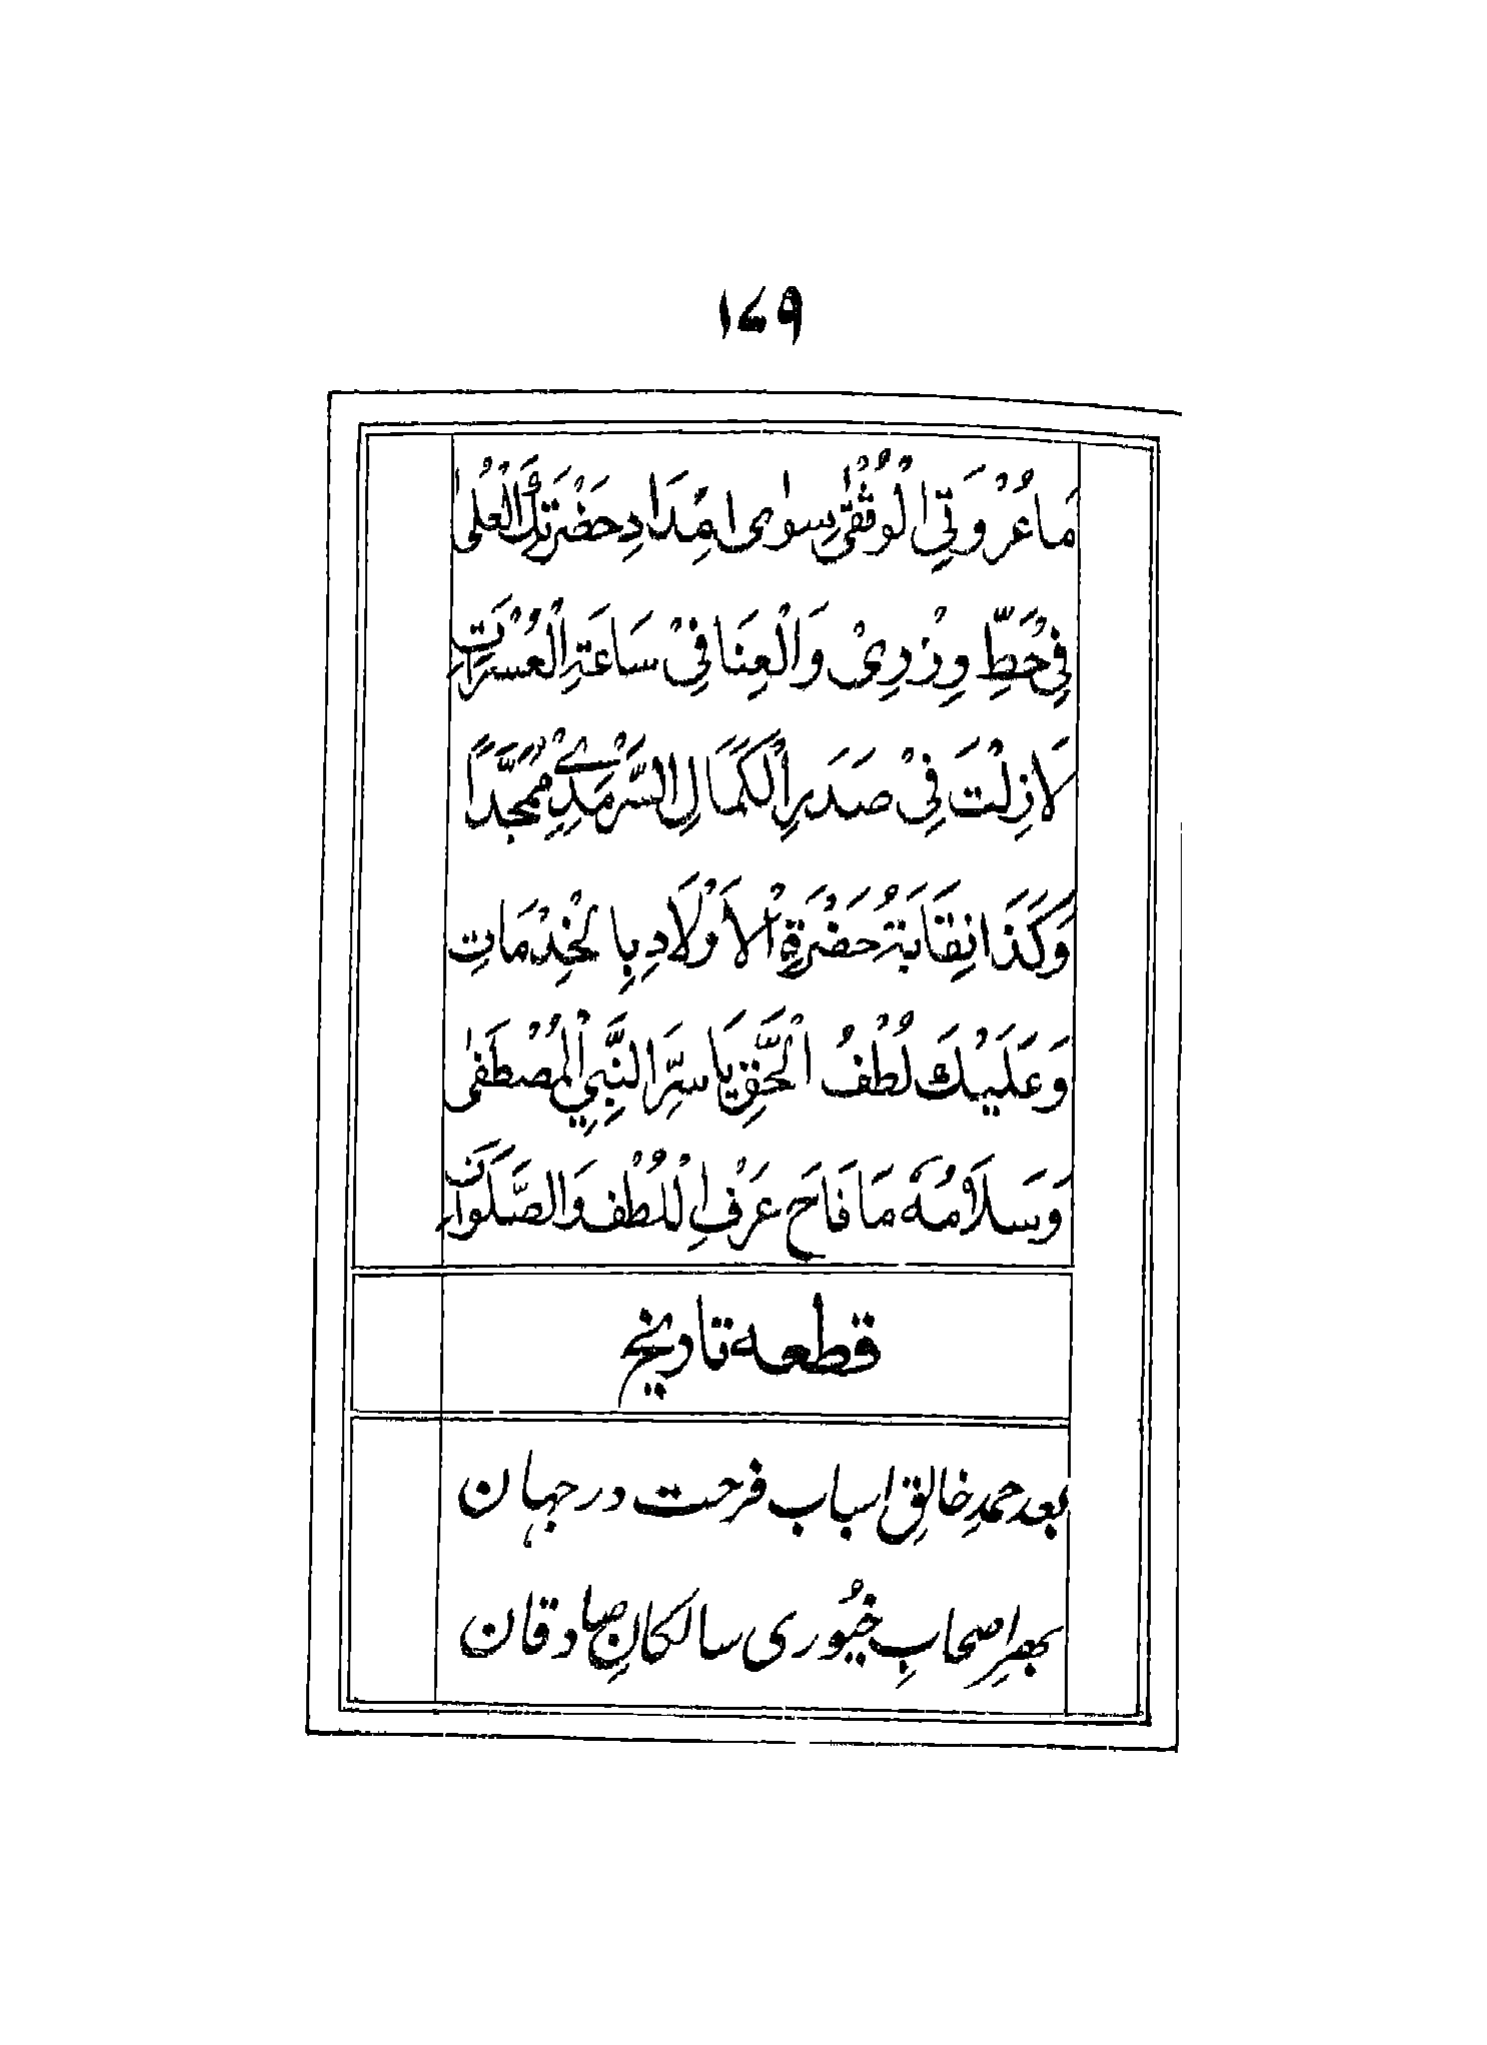 ۱۷۹
مَا عُرْوَتِي الْوُثْقٰى سِوٰى اِمْدَادِ حَضْرَتِكَ الْعُلٰى
فِيْ حَطِّ وِزْرِيْ وَالْعِنَا فِيْ سَاعَةِ الْعُسْرَاتِ
لَا زِلْتَ فِيْ صَدَرِ الْكَمَالِ السَّرْمَدِيْ مُمَجَّدًا
وَكَذَا نِقَابَةُ حَضْرَةِ الْأَوْلَادِ بِالْخِدْمَاتِ
وَعَلَيْكَ لُطْفُ الْحَقِّ يَا سِرَّ النَّبِيِ الْمُصْطَفٰى
وَسَلَامُهٗ مَا فَاحَ عَرْفِ اللُّطْفِ وَالصَّلَوَاتِ
قطعه تاریخ
بعد حمدِ خالقِ اسباب فرحت در جہان
بھرِ اصحابِ خیُوری سالکانِ صادقان